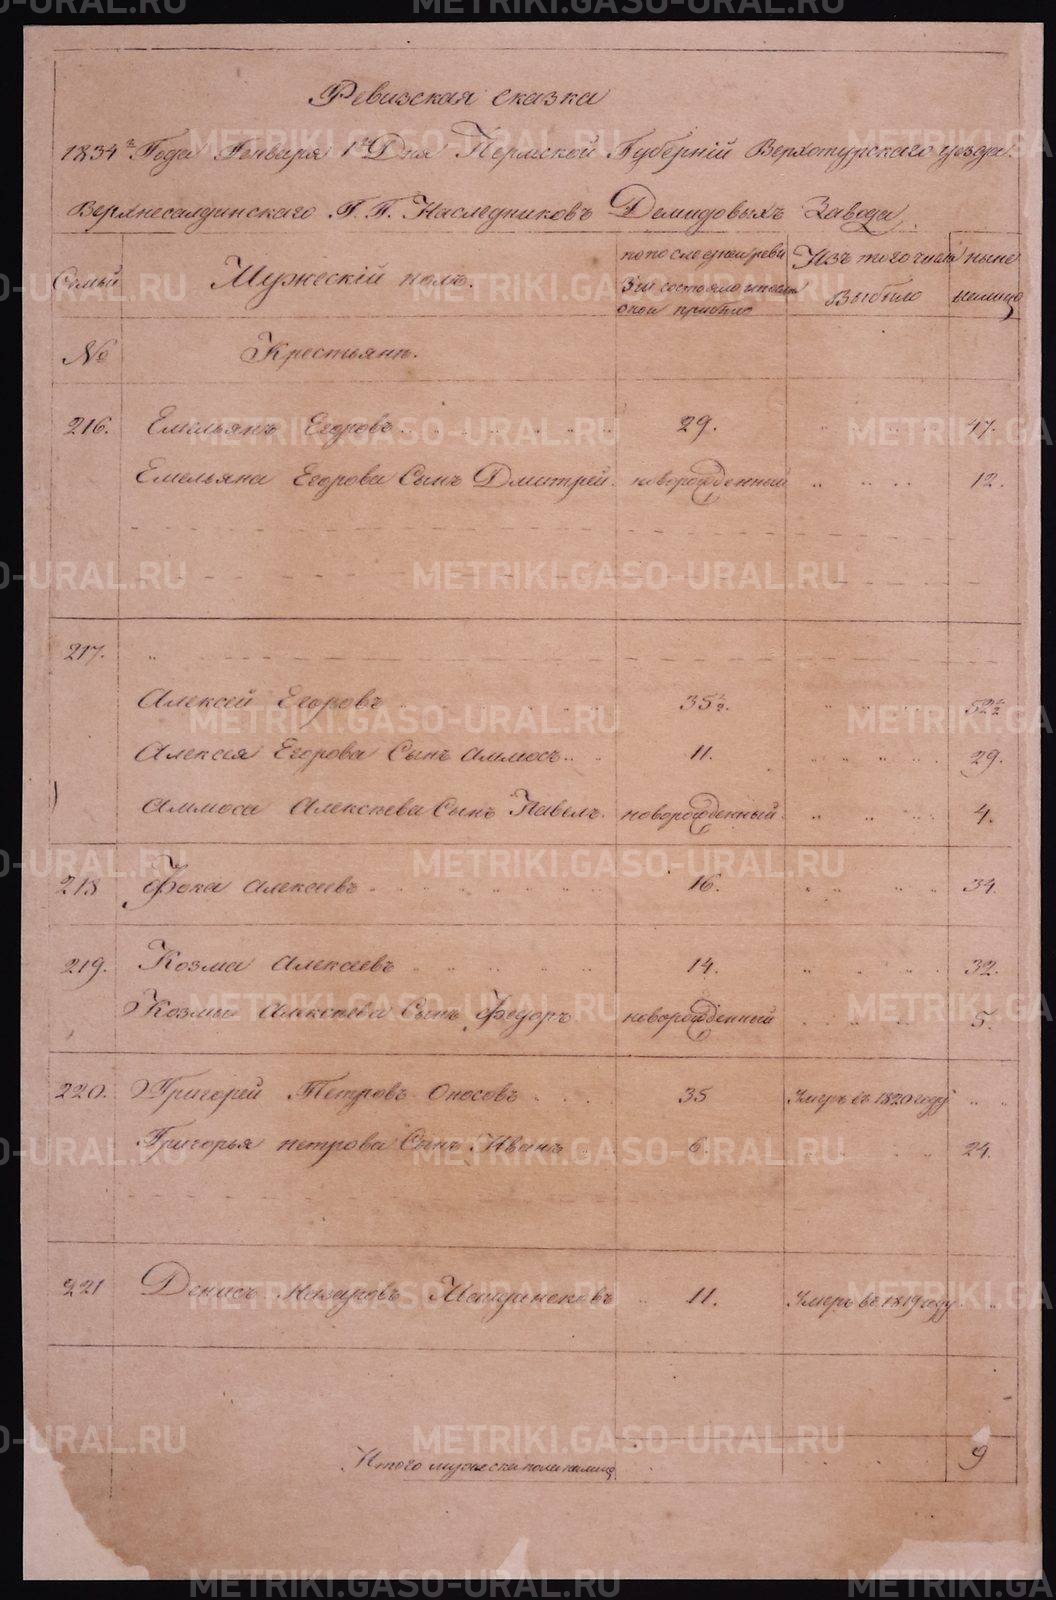 Ревизская сказка
1834 г. Года Генваря 1 го Дня Пермской Губерніи Верхотурскаго уезда.
Верхнесалдинскаго Г. Г. Наследниковъ Демидовыхъ Завода.
Семьи Мужескій полъ. по последней реви Изъ того числа ныне
зіи состояло и после Выбыло налицо
оной прибыло
№ Крестьянъ.
216. Емельянъ Егоровъ 29. 47.
Емельяна Егорова Сынъ Дмитрей. новорожденный 12.
217.
Алексей Егоровъ 35 1/2. 52 1/2
Алексея Егорова Сынъ Аммосъ 11. 29.
Аммоса Алексеева Сынъ Павелъ. новорожденный. 4.
218 Фока Алексеевъ 16. 34.
219. Козма Алексеевъ 14. 32.
Козмы Алексеева Сынъ Федоръ новорожденный 5.
220. Григорей Петровъ Оносовъ 35 Умеръ въ 1820 году
Григорья петрова Сынъ Иванъ 6. 24.
221 Денисъ Назаровъ 11. Умеръ въ 1819 году
Итого мужеска пола налицо 9
METRIKI.GASO-URAL.RU